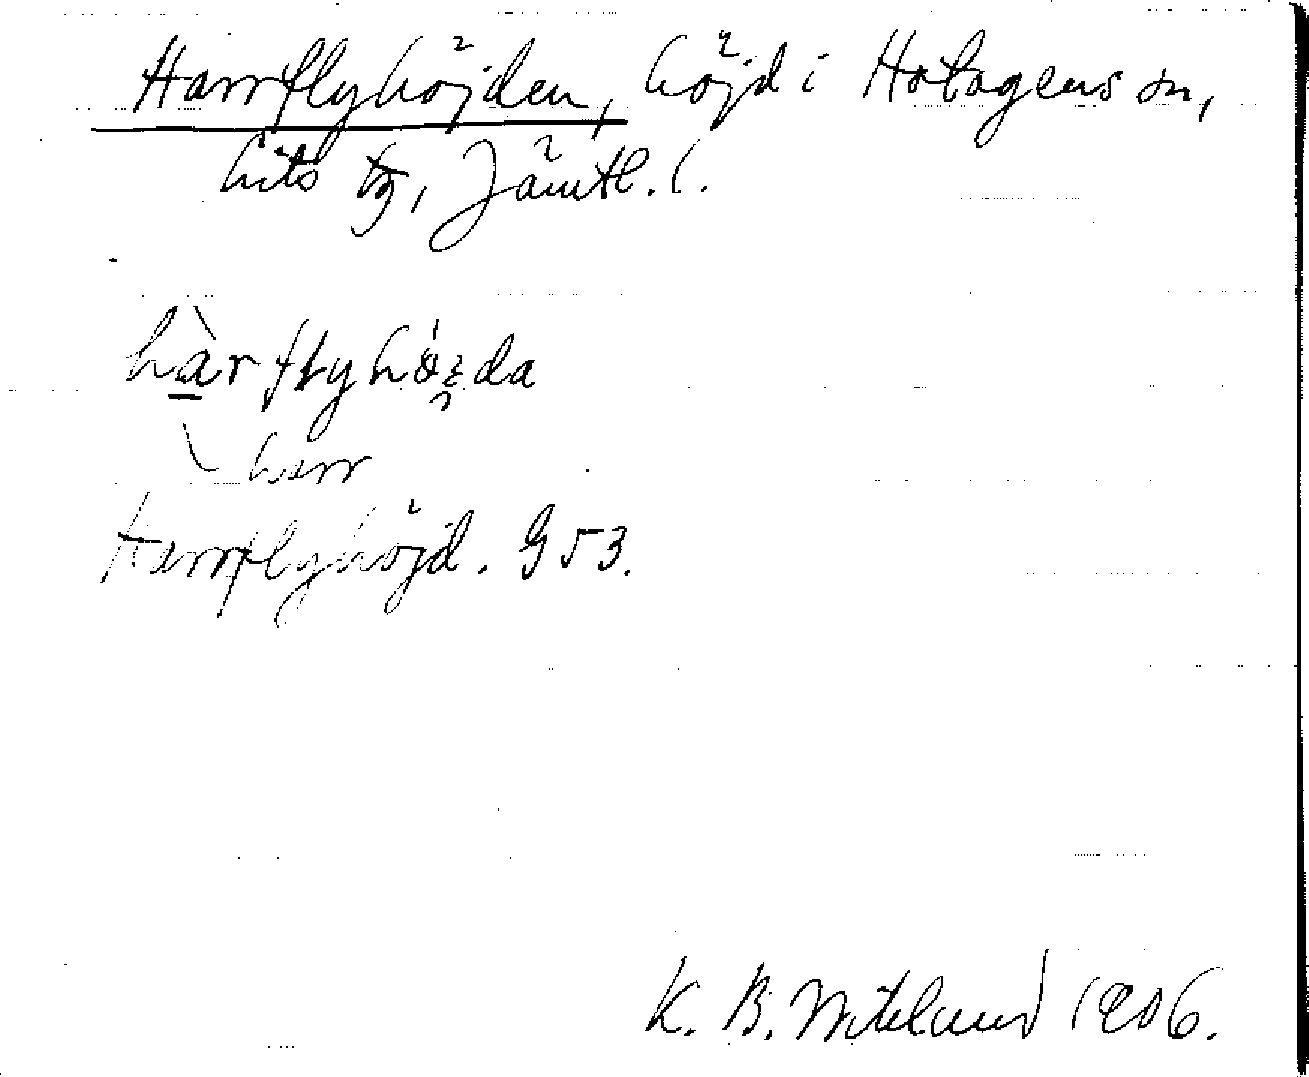 Harrflyhöjden, höjd i Hotagens sn,
Lits tg, Jämtl. l.
hàrflyhǿʒda
harr
Harrflyhöjd. G 53.
K. B. Wiklund 1906.